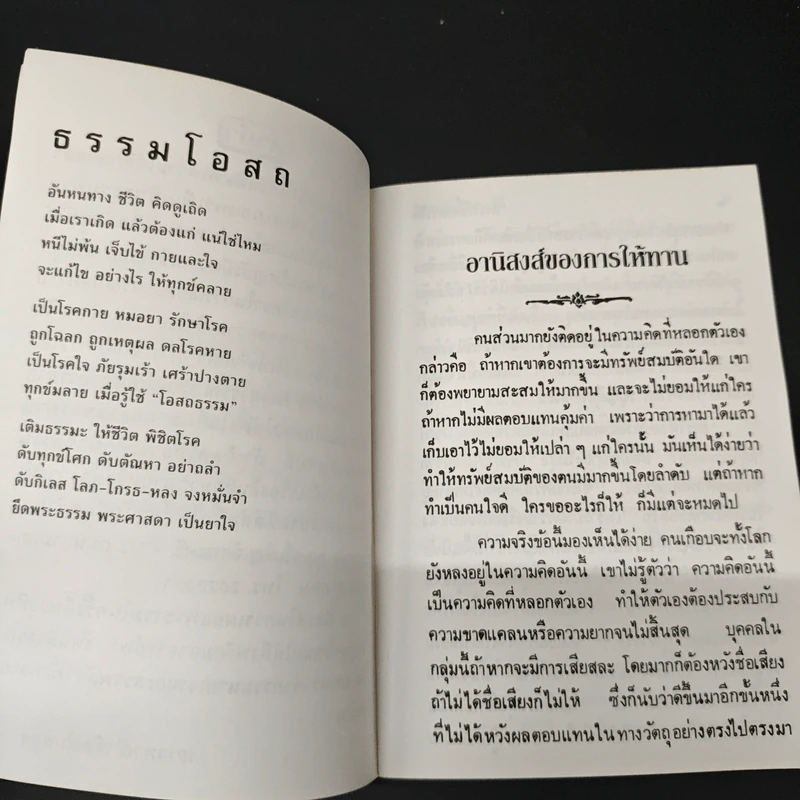 ธรรมโอสถ
อันหนทาง ชีวิต คิดดูเถิด
เมื่อเราเกิด แล้วต้องแก่ แน่ใช่ไหม
หนีไม่พ้น เจ็บไข้ กายและใจ
จะแก้ไข อย่างไร ให้ทุกข์คลาย
เป็นโรคกาย หมอยา รักษาโรค
ถูกโฉลก ถูกเหตุผล ดลโรคหาย
เป็นโรคใจ ภัยรุมเร้า เศร้าปางตาย
ทุกข์มลาย เมื่อรู้ใช้ “โอสถธรรม”
เติมธรรมะ ให้ชีวิต พิชิตโรค
ดับทุกข์โศก ดับตัณหา อย่าถลำ
ดับกิเลส โลภ-โกรธ-หลง จงหมั่นจำ
ยึดพระธรรม พระศาสดา เป็นยาใจ
อานิสงส์ของการให้ทาน
คนส่วนมากยังติดอยู่ในความคิดที่หลอกตัวเอง
กล่าวคือ ถ้าหากเขาต้องการจะมีทรัพย์สมบัติอันใด เขา
ก็ต้องพยายามสะสมให้มากขึ้น และจะไม่ยอมให้แก่ใคร
ถ้าหากไม่มีผลตอบแทนคุ้มค่า เพราะว่าการหามาได้แล้ว
เก็บเอาไว้ไม่ยอมให้เปล่า ๆ แก่ใครนั้น มันเห็นได้ง่ายว่า
ทำให้ทรัพย์สมบัติของตนมีมากขึ้นโดยลำดับ แต่ถ้าหาก
ทำเป็นคนใจดี ใครขออะไรก็ให้ ก็มีแต่จะหมดไป
ความจริงข้อนี้มองเห็นได้ง่าย คนเกือบจะทั้งโลก
ยังหลงอยู่ในความคิดอันนี้ เขาไม่รู้ตัวว่า ความคิดอันนี้
เป็นความคิดที่หลอกตัวเอง ทำให้ตัวเองต้องประสบกับ
ความขาดแคลนหรือความยากจนไม่สิ้นสุด บุคคลใน
กลุ่มนี้ถ้าหากจะมีการเสียสละ โดยมากก็ต้องหวังชื่อเสียง
ถ้าไม่ได้ชื่อเสียงก็ไม่ให้ ซึ่งก็นับว่าดีขึ้นมาอีกขั้นหนึ่ง
ที่ไม่ได้หวังผลตอบแทนในทางวัตถุอย่างตรงไปตรงมา